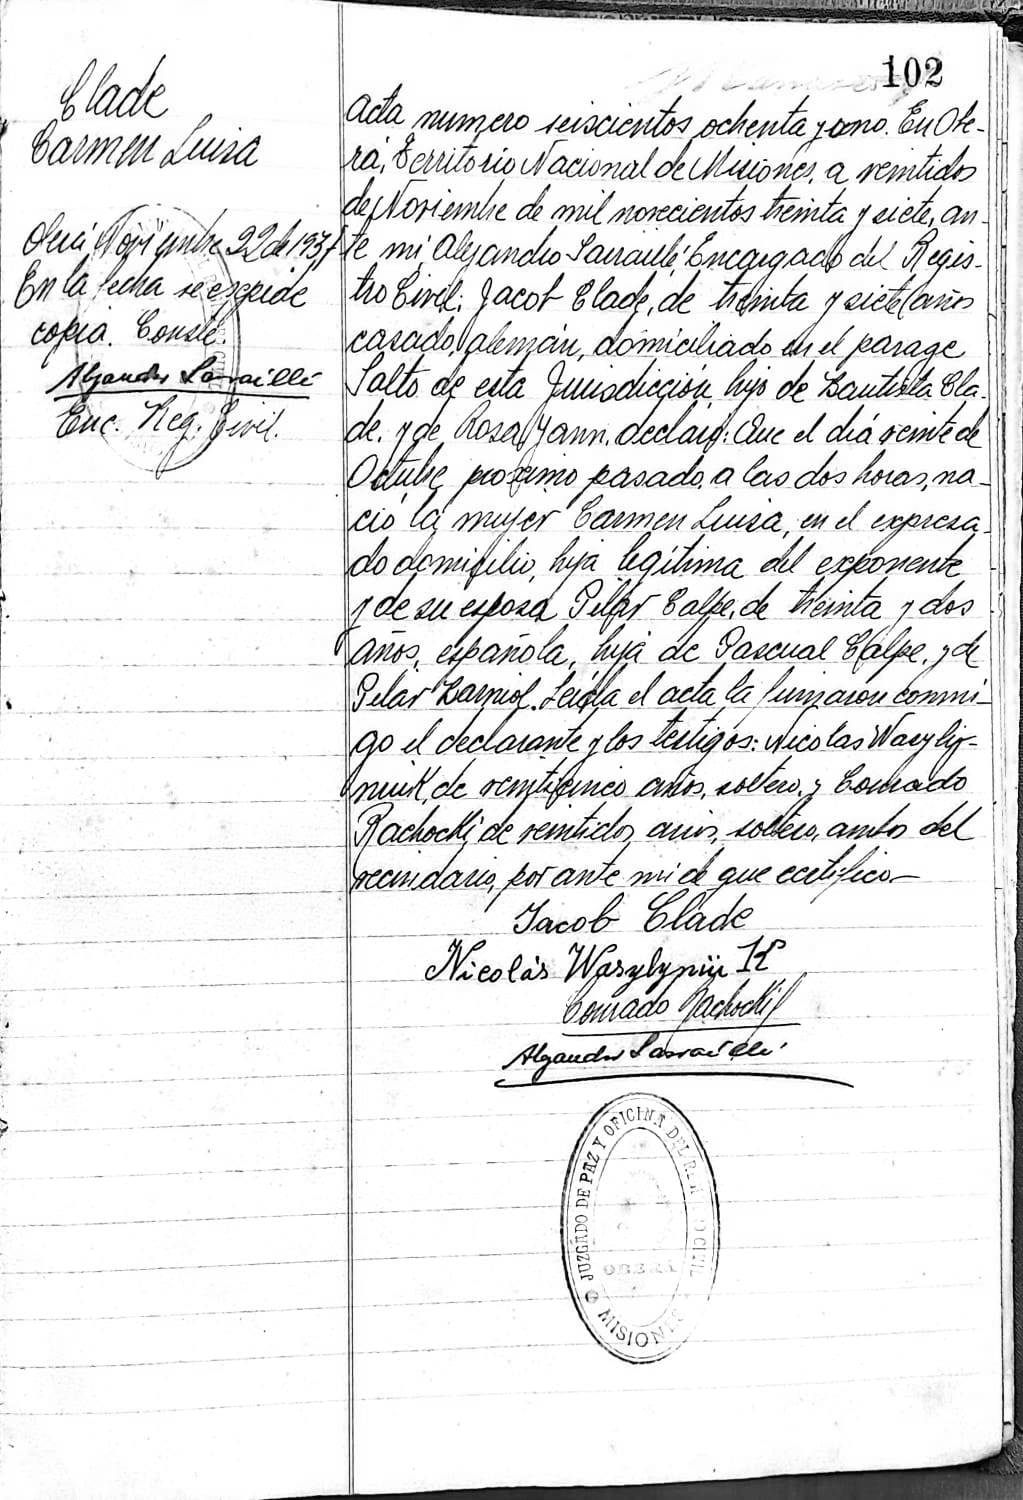 102
Clade
Carmen Luisa
Oberá Noviembre 22 de 1937
En la fecha se expide
copia. Conste.
Alejandro Sarraillé
Enc. Reg. Civil.
Acta numero seiscientos ochenta y uno. En Obe-
rá, Territorio Nacional de Misiones, a veintidos
de Noviembre de mil novecientos treinta y siete, an-
te mi Alejandro Sarraillé Encargado del Regis-
tro Civil; Jacob Clade, de treinta y siete años
casado, alemán, domiciliado en el parage
Salto de esta Jurisdicción, hijo de Bautista Cla-
de, y de Rosa Yann, declaró: Que el dia veinte de
Octubre proximo pasado, a las dos horas, na-
ció la mujer Carmen Luisa, en el expresa-
do domicilio, hija legítima del exponente
y de su esposa Pilar Calpe, de treinta y dos
años, española, hija de Pascual Calpe, y de
Pilar Barniol. Leida el acta la firmaron conmi-
go el declarante y los testigos: Nicolas Wasyliy-
niuk, de veinticinco años, soltero, y Conrado
Rachocki, de veintidos años, soltero, ambos del
vecindario, por ante mi de que certifico—
Jacob Clade
Nicolás
Conrado Rachocki
Alejandro Sarraillé
JUZGADO DE PAZ Y OFICINA DEL CIVIL
OBERA
MISIONES